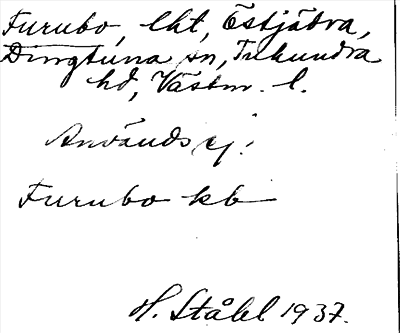 Furubo, lht, Östjädra,
Dingtuna sn, Tuhundra
hd, Västm. l.
Används ej!
Furubo kb
H. Ståhl 1937.